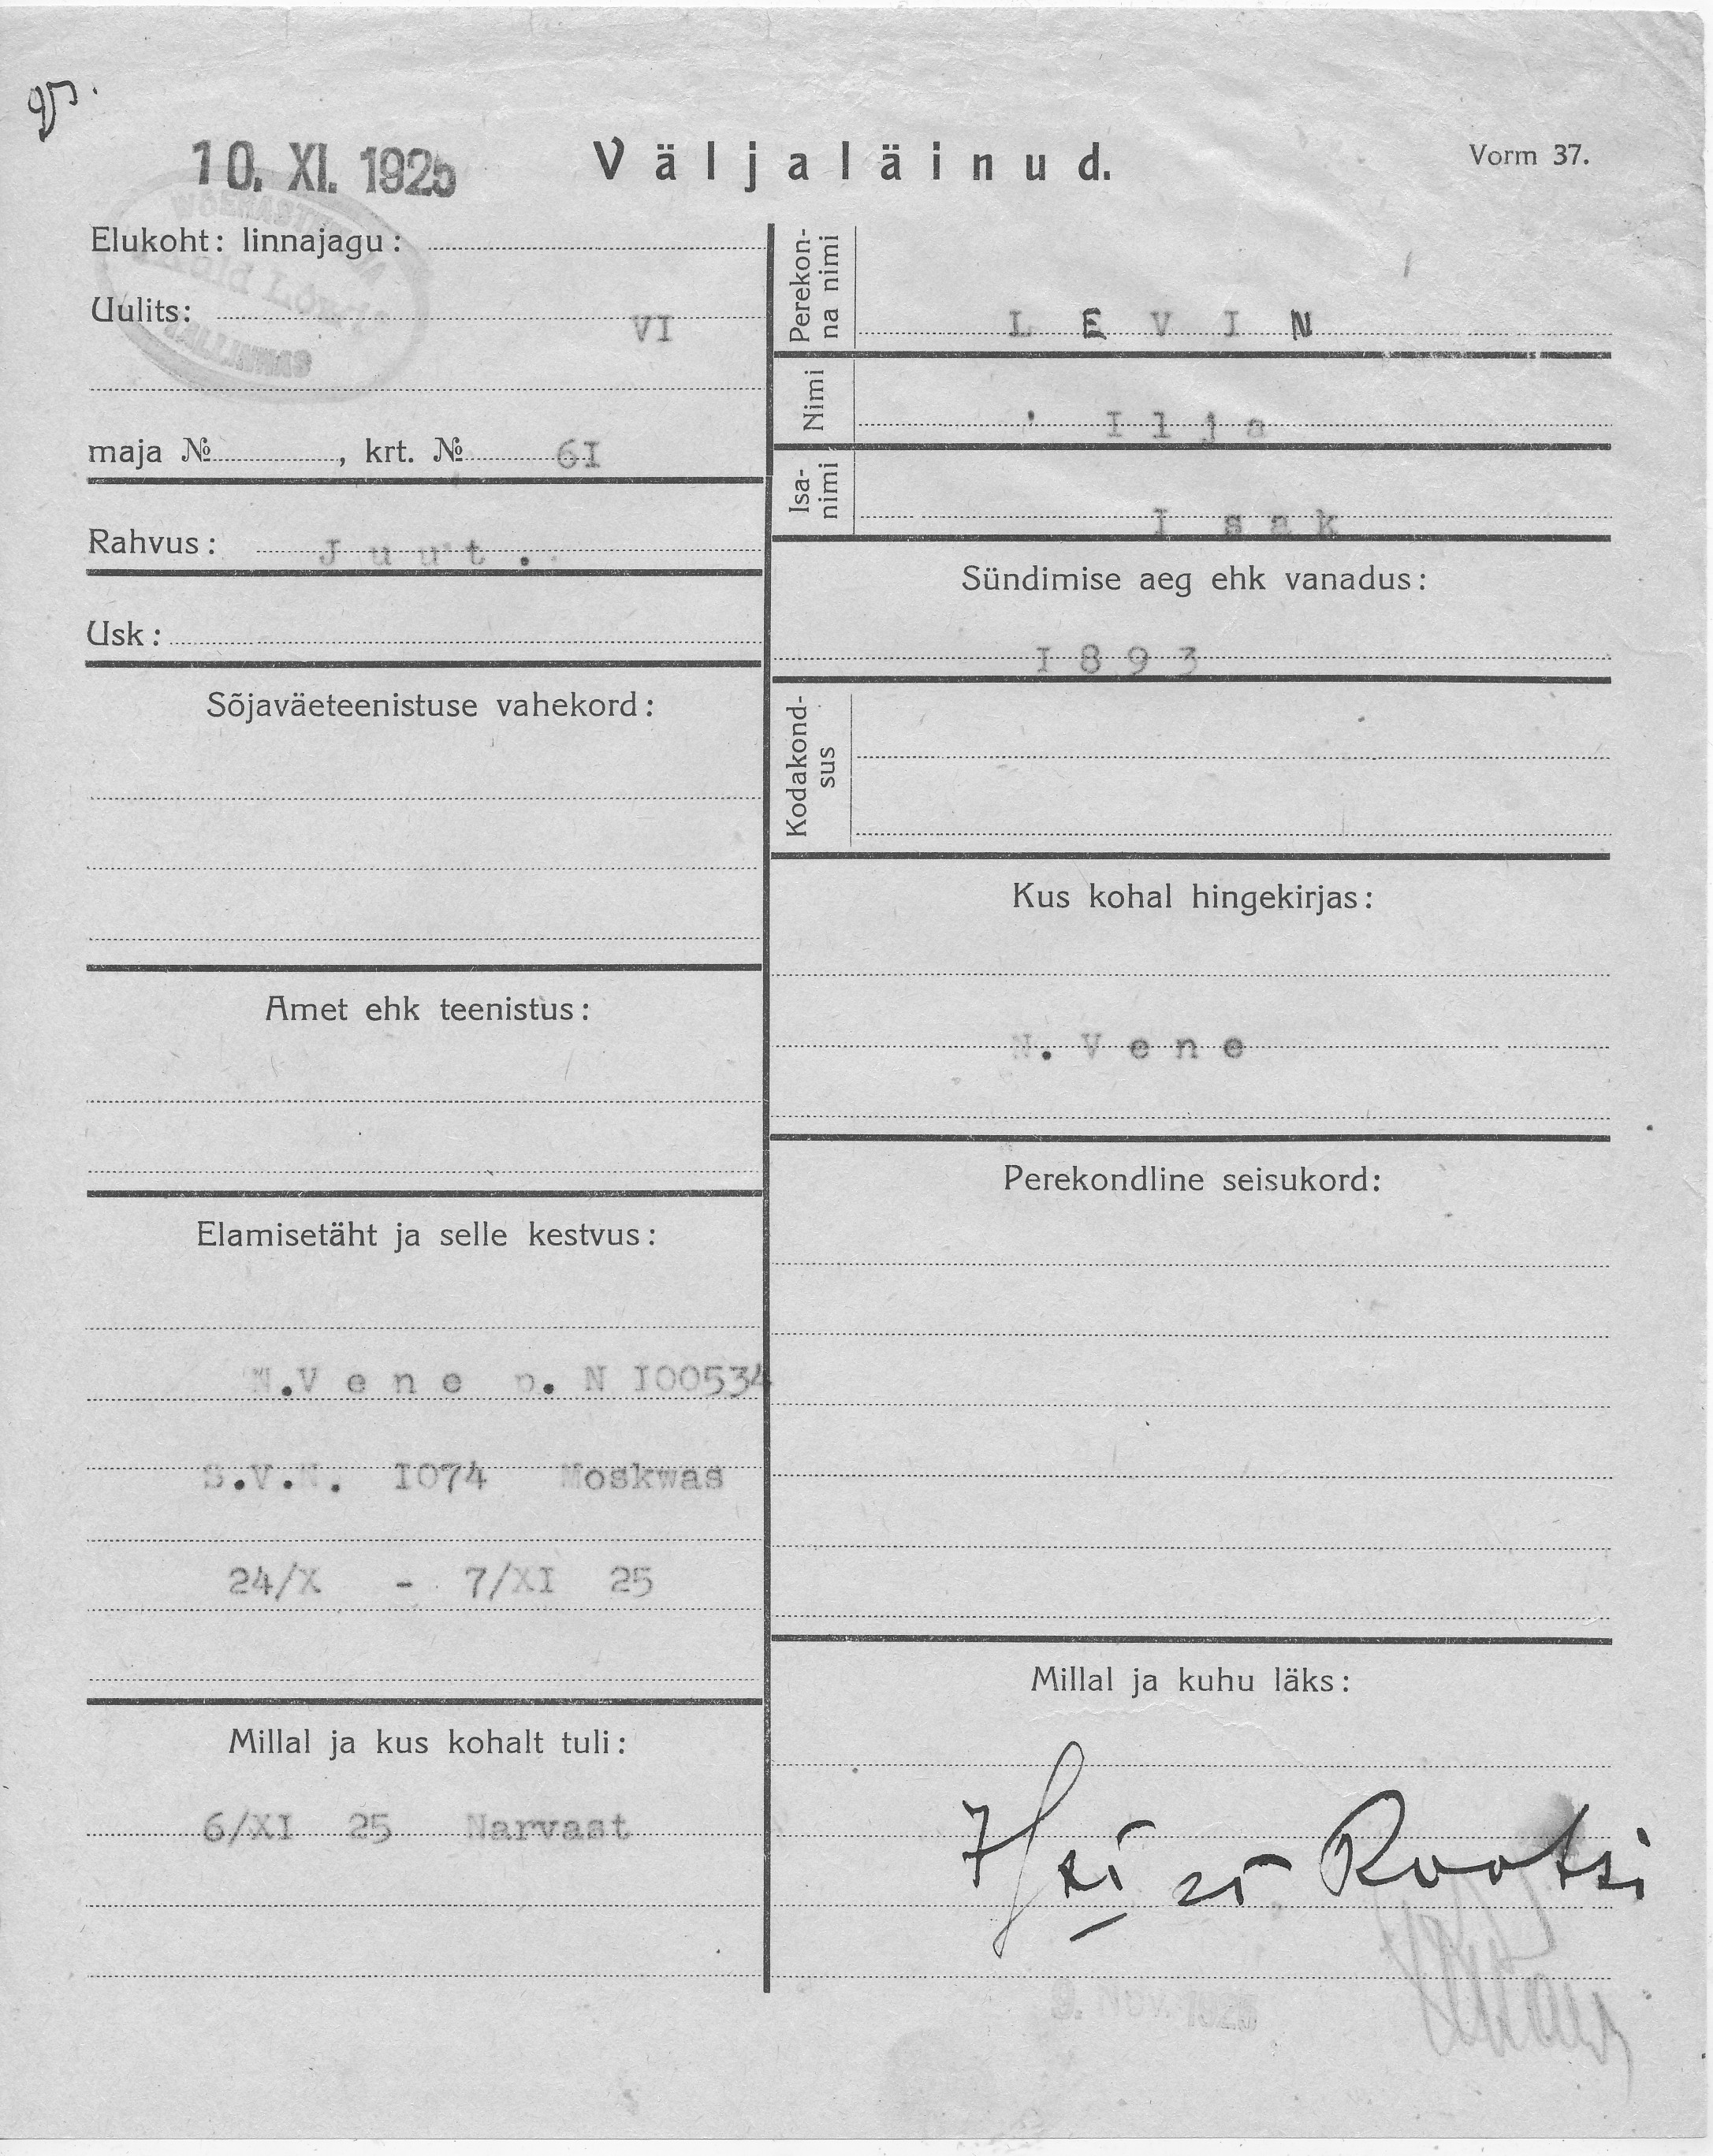 10. XI. 1925
Väljaläinud.
Vorm 37.
WÖERASTEMAJA
TALLINNAS
Elukoht: linnajagu:
Uulits:
VI
maja № , krt. № 6I
Rahvus: Juut.
Usk:
Sõjaväeteenistuse vahekord:
Amet ehk teenistus:
Elamisetäht ja selle kestvus:
N.Vene p. N I00534
S.V.N. I074 Moskwas
24/X - 7/XI 25
Millal ja kus kohalt tuli:
6/XI 25 Narvast
Perekon-
na nimi
LEVIN
Nimi
Ilja
Isa-
nimi
Isak
Sündimise aeg ehk vanadus:
I893
Kodakond-
sus
Kus kohal hingekirjas:
N. Vene
Perekondline seisukord:
Millal ja kuhu läks:
7/XI 25 Rootsi
9. Nov. 1925